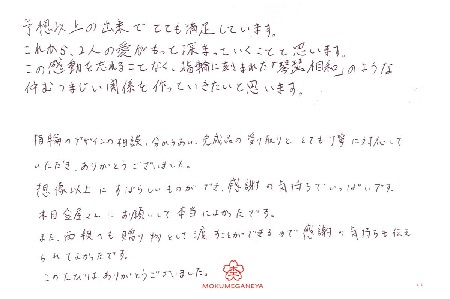 予想以上の出来でとても満足しています。
これから、2人の愛がもっと深まっていくことと思います。
この感動を忘れることなく、指輪に刻まれた「琴瑟相和」のような
仲むつまじい関係を作っていきたいと思います。
指輪のデザインの相談、分かちあい、完成品の受け取りととても丁寧に対応して
いただき、ありがとうございました。
想像以上にすばらしいものができ、感謝の気持ちでいっぱいです。
木目金屋さんにお願いして本当によかったです。
また、両親へも贈り物として渡すことができるので感謝の気持ちも伝え
られてよかったです。
このたびはありがとうございました。
MOKUMEGANEYA